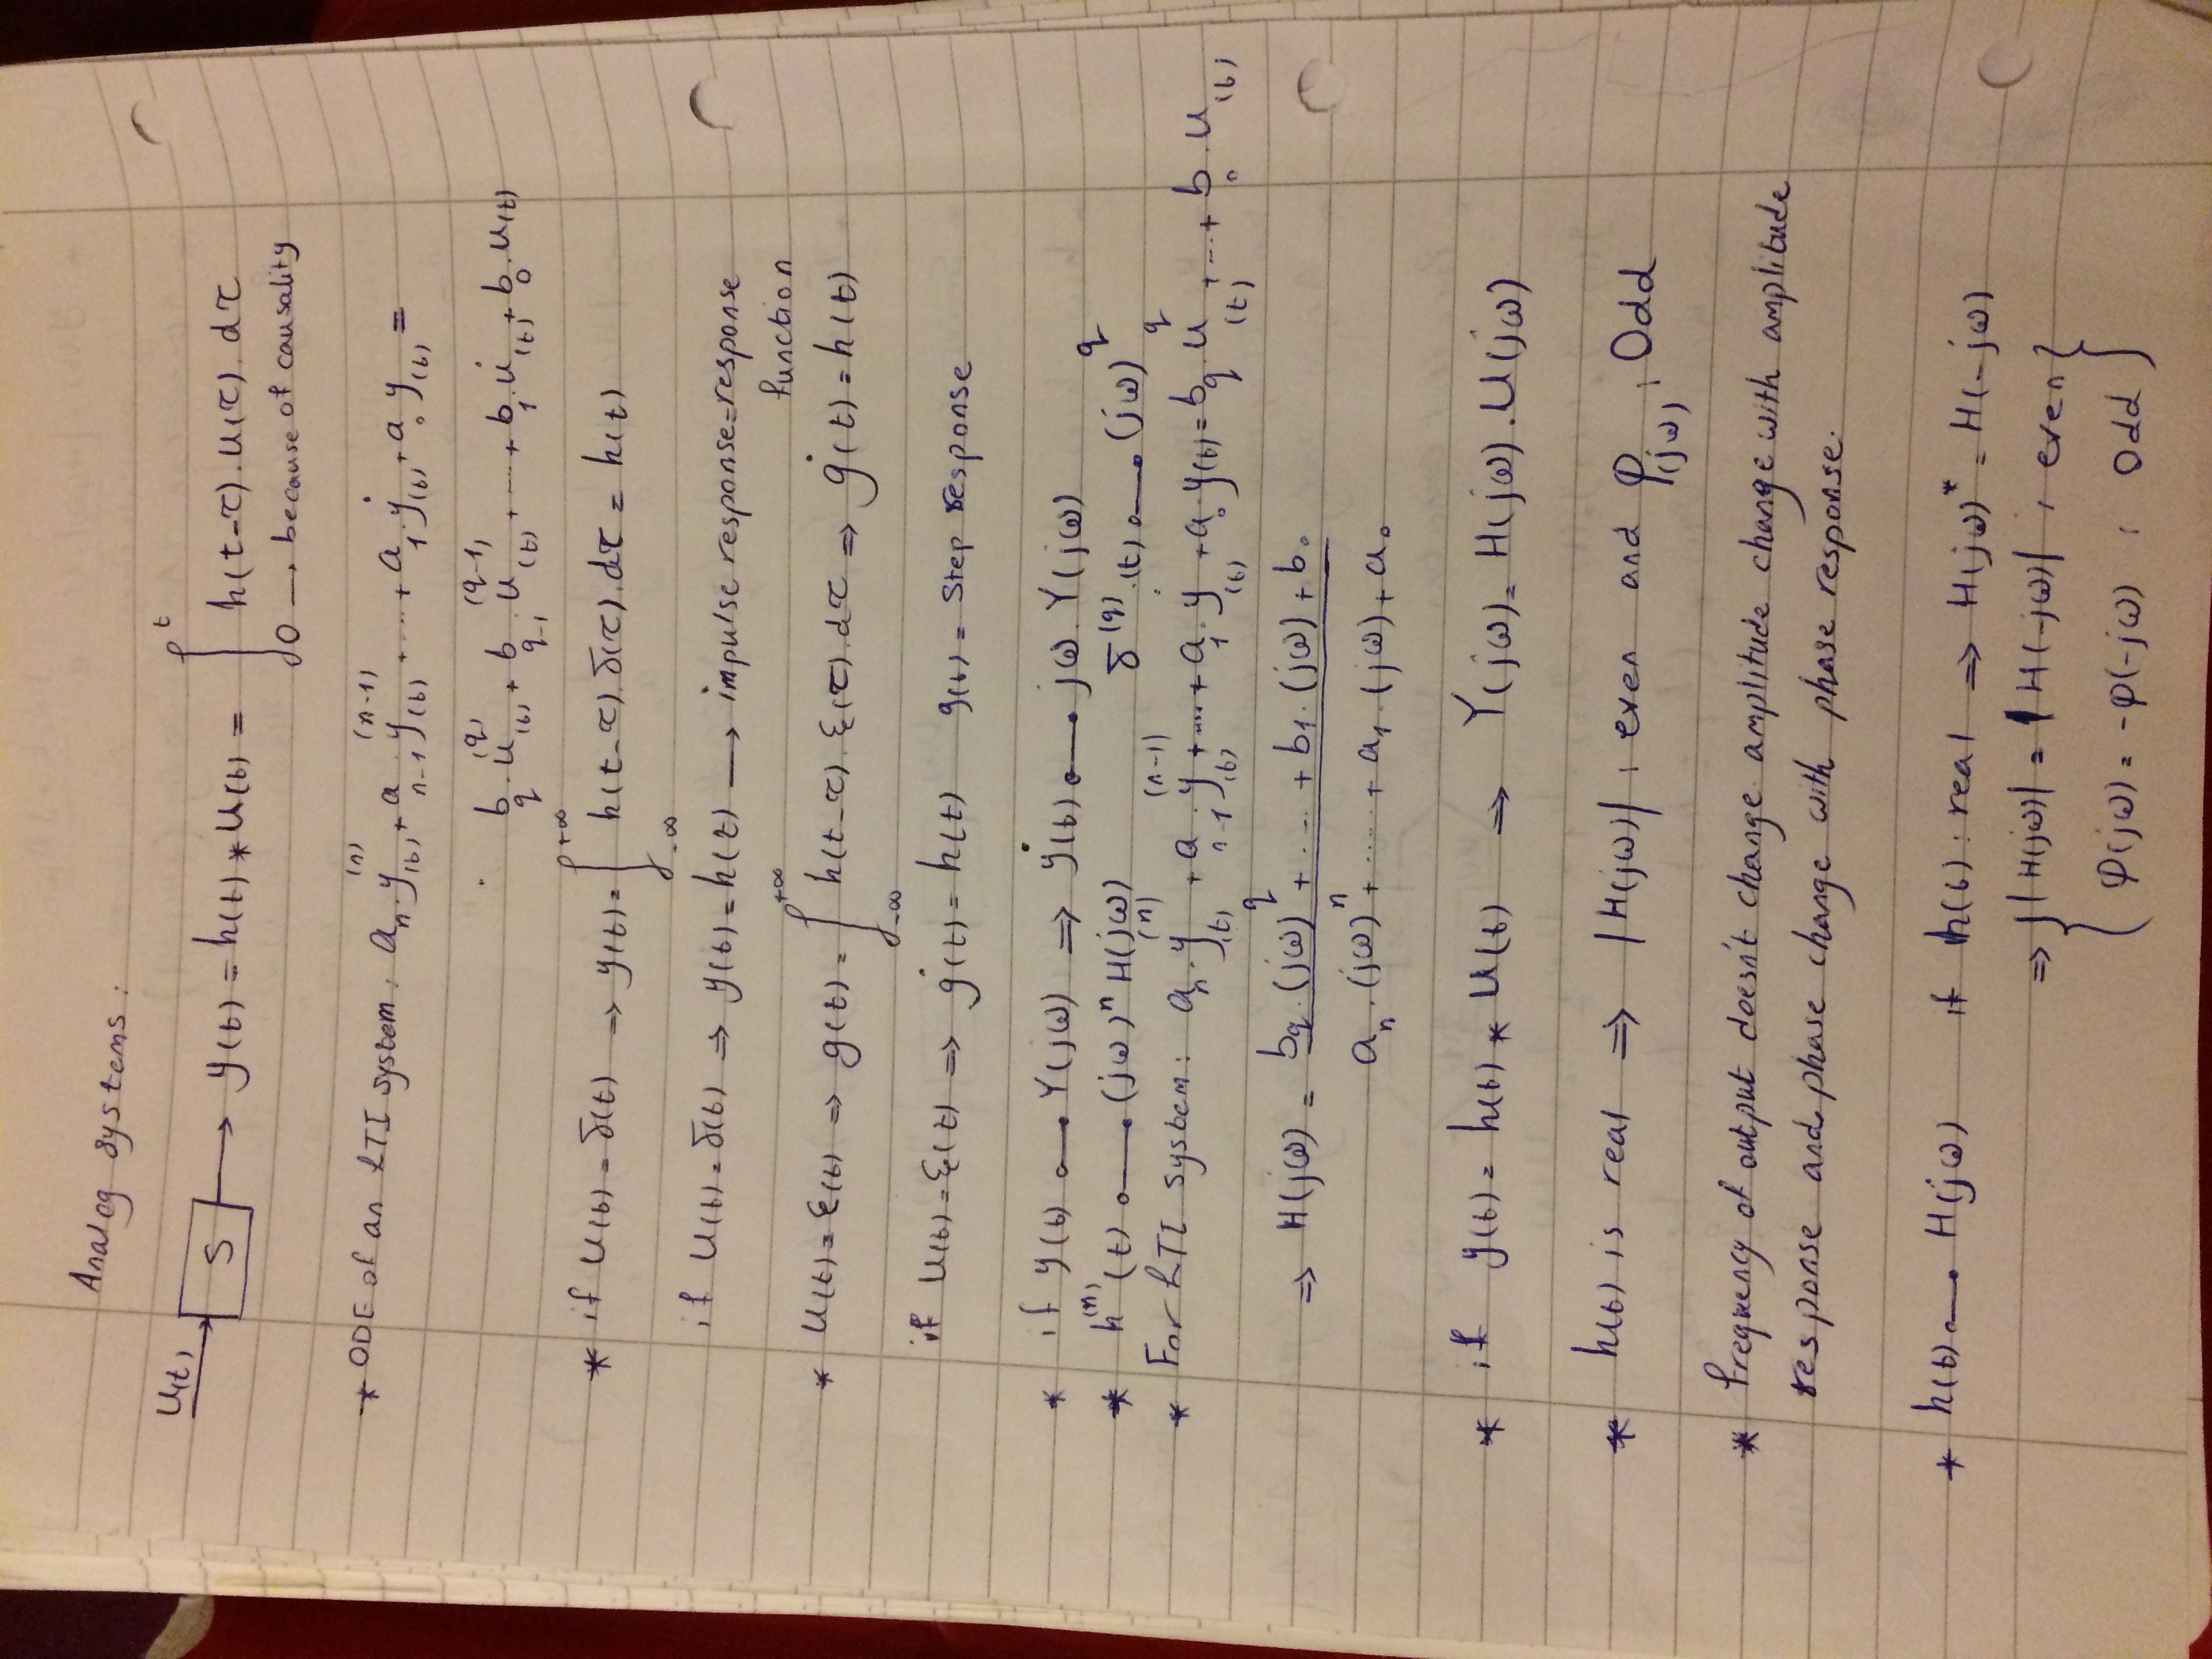 Analog systems:
u(t) → S → y(t) = h(t) * u(t) = ∫₀ᵗ h(t-τ).u(τ).dτ
0 → because of causality
* ODE of an LTI system: aₙ.y⁽ⁿ⁾(t) + aₙ₋₁.y⁽ⁿ⁻¹⁾(t) + .... + a₁.ẏ(t) + a₀ y(t) =
b_q.u^(q)(t) + b_q-1.u^(q-1)(t) + .... + b₁.u̇(t) + b₀.u(t)
* if u(t) = δ(t) ⇒ y(t) = ∫_-∞^+∞ h(t-τ).δ(τ).dτ = h(t)
if u(t) = δ(t) ⇒ y(t) = h(t) → impulse response = response
function
* u(t) = ε(t) ⇒ g(t) = ∫_-∞^+∞ h(t-τ).ε(τ).dτ ⇒ ġ(t) = h(t)
if u(t) = ε(t) ⇒ ġ(t) = h(t) g(t) = Step response
* if y(t) ○—• Y(jω) ⇒ ẏ(t) ○—• jω.Y(jω)
* h⁽ⁿ⁾(t) ○—• (jω)ⁿ H(jω) δ^(q)(t) ○—• (jω)^q
* For LTI system: aₙ.y⁽ⁿ⁾(t) + aₙ₋₁.y⁽ⁿ⁻¹⁾(t) + .... + a₁.ẏ(t) + a₀.y(t) = b_q.u^q(t) + ... + b₀.u(t)
⇒ H(jω) = (b_q.(jω)^q + .... + b₁.(jω) + b₀) / (aₙ.(jω)ⁿ + ..... + a₁.(jω) + a₀)
* if y(t) = h(t) * u(t) ⇒ Y(jω) = H(jω).U(jω)
* h(t) is real ⇒ |H(jω)| : even and φ(jω) : Odd
* frequency of output doesn't change. amplitude change with amplitude
response and phase change with phase response.
* h(t) ○—• H(jω) if h(t) : real ⇒ H(jω)* = H(-jω)
⇒ { |H(jω)| = |H(-jω)| : even }
{ φ(jω) = -φ(-jω) : Odd }